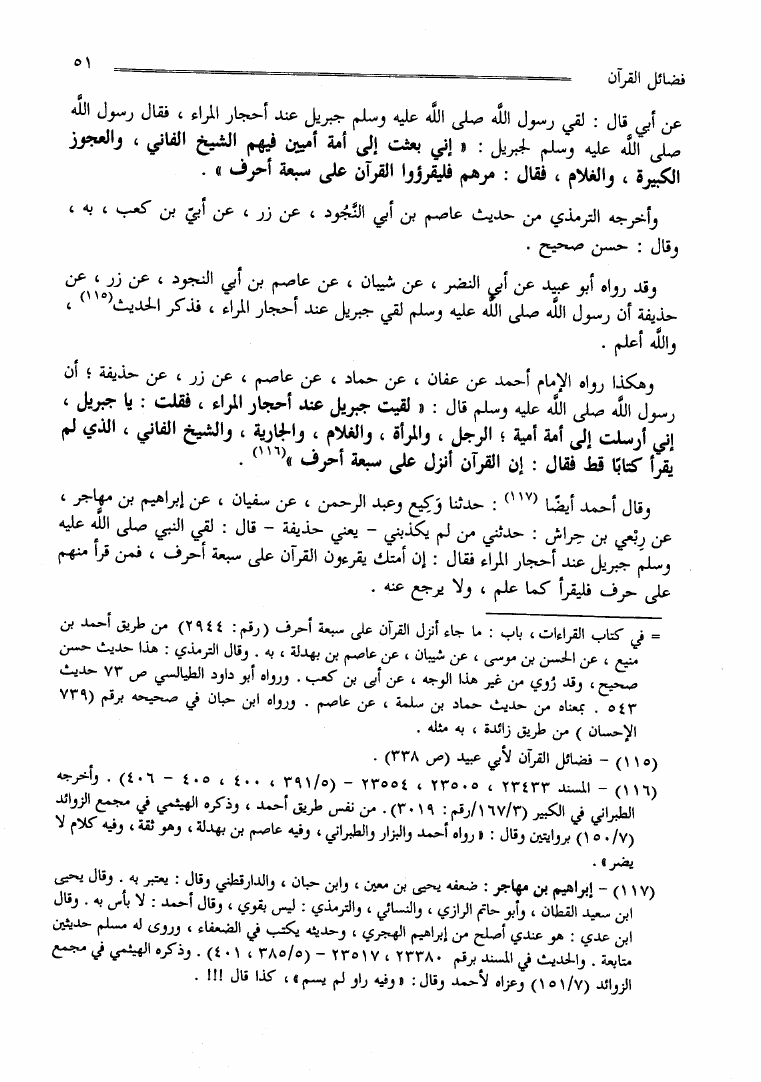 فضائل القرآن ٥١
عن أبي قال : لقي رسول اللَّه صلى اللَّه عليه وسلم جبريل عند أحجار المراء ، فقال رسول اللَّه
صلى اللَّه عليه وسلم لجبريل : « إني بعثت إلى أمة أميين فيهم الشيخ الفاني ، والعجوز
الكبيرة ، والغلام ، فقال : مرهم فليقرؤوا القرآن على سبعة أحرف » .
وأخرجه الترمذي من حديث عاصم بن أبي النَّجُود ، عن زر ، عن أبيّ بن كعب ، به ،
وقال : حسن صحيح .
وقد رواه أبو عبيد عن أبي النضر ، عن شيبان ، عن عاصم بن أبي النجود ، عن زر ، عن
حذيفة أن رسول اللَّه صلى اللَّه عليه وسلم لقي جبريل عند أحجار المراء ، فذكر الحديث(١١٥) ،
واللَّه أعلم .
وهكذا رواه الإمام أحمد عن عفان ، عن حماد ، عن عاصم ، عن زر ، عن حذيفة ؛ أن
رسول اللَّه صلى اللَّه عليه وسلم قال : « لقيت جبريل عند أحجار المراء ، فقلت : يا جبريل ،
إني أرسلت إلى أمة أمية ؛ الرجل ، والمرأة ، والغلام ، والجارية ، والشيخ الفاني ، الذي لم
يقرأ كتابًا قط فقال : إن القرآن أنزل على سبعة أحرف »(١١٦) .
وقال أحمد أيضًا (١١٧) : حدثنا وَكِيع وعبد الرحمن ، عن سفيان ، عن إبراهيم بن مهاجر ،
عن رِبْعي بن حِراش : حدثني من لم يكذبني – يعني حذيفة – قال : لقي النبي صلى اللَّه عليه
وسلم جبريل عند أحجار المراء فقال : إن أمتك يقرءون القرآن على سبعة أحرف ، فمن قرأ منهم
على حرف فليقرأ كما علم ، ولا يرجع عنه .
= في كتاب القراءات ، باب : ما جاء أنزل القرآن على سبعة أحرف (رقم : ٢٩٤٤) من طريق أحمد بن
منيع ، عن الحسن بن موسى ، عن شيبان ، عن عاصم بن بهدلة ، به . وقال الترمذي : هذا حديث حسن
صحيح ، وقد رُوي من غير هذا الوجه ، عن أبى بن كعب . ورواه أبو داود الطيالسي ص ٧٣ حديث
٥٤٣ . بمعناه من حديث حماد بن سلمة ، عن عاصم . ورواه ابن حبان في صحيحه برقم (٧٣٩
الإحسان ) من طريق زائدة ، به مثله .
(١١٥) – فضائل القرآن لأبي عبيد (ص ٣٣٨) .
(١١٦) – المسند ٢٣٤٣٣ ، ٢٣٥٠٥ ، ٢٣٥٥٤ – (٣٩١/٥ ، ٤٠٠ ، ٤٠٥ – ٤٠٦) . وأخرجه
الطبراني في الكبير (١٦٧/٣/رقم : ٣٠١٩) . من نفس طريق أحمد ، وذكره الهيثمي في مجمع الزوائد
(١٥٠/٧) بروايتين وقال : « رواه أحمد والبزار والطبراني ، وفيه عاصم بن بهدلة ، وهو ثقة ، وفيه كلام لا
يضر » .
(١١٧) – إبراهيم بن مهاجر : ضعفه يحيى بن معين ، وابن حبان ، والدارقطني وقال : يعتبر به . وقال يحيى
ابن سعيد القطان ، وأبو حاتم الرازي ، والنسائي ، والترمذي : ليس بقوي ، وقال أحمد : لا بأس به . وقال
ابن عدي : هو عندي أصلح من إبراهيم الهجري ، وحديثه يكتب في الضعفاء ، وروى له مسلم حديثين
متابعة . والحديث في المسند برقم ٢٣٣٨٠ ، ٢٣٥١٧ – (٣٨٥/٥ ، ٤٠١) . وذكره الهيثمي في مجمع
الزوائد (١٥١/٧) وعزاه لأحمد وقال : « وفيه راو لم يسم » ، كذا قال !!! .